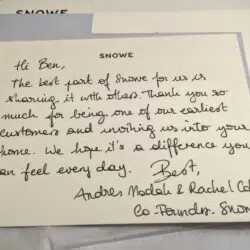 SNOWE
SNOWE
Hi Ben,
The best part of Snowe for us is
sharing it with others. Thank you so
much for being one of our earliest
customers and inviting us into your
home. We hope it's a difference you
an feel every day. Best,
Andres Modak & Rachel Co
Co-Founders, Snow